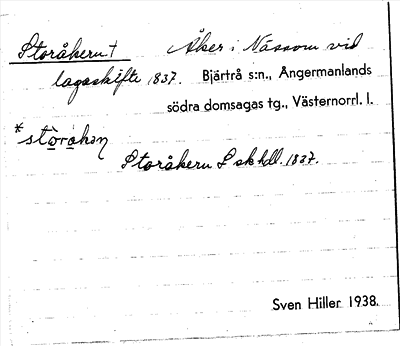 Storåkern † Åker i Nässom vid
lagaskifte 1837. Bjärtrå s:n., Ångermanlands
södra domsagas tg., Västernorrl. l.
*stòråkən
Storåkern L sk hdl. 1837.
Sven Hiller 1938.